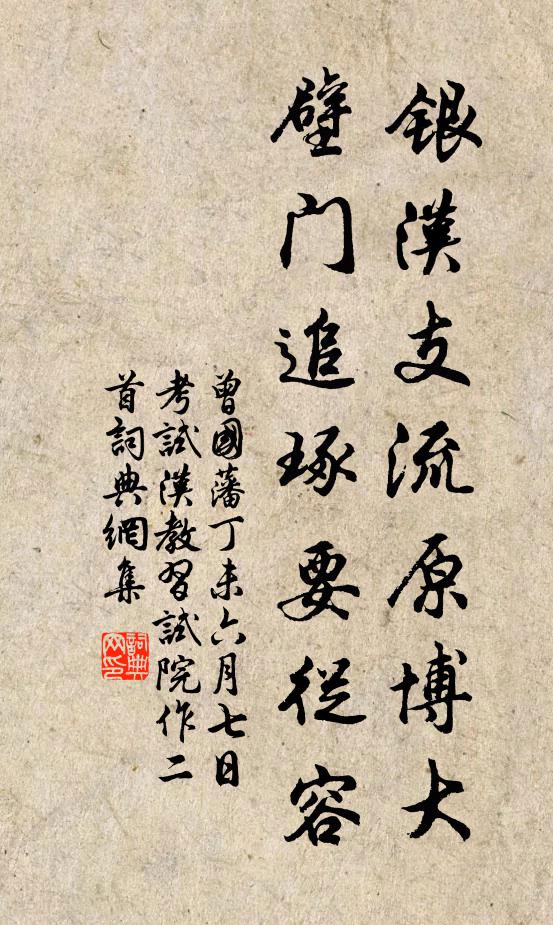 銀漢支流原博大
壁門追琢要從容
曾國藩丁未六月七日
考試漢教習試院作二
首詞典網集
詞典
网印